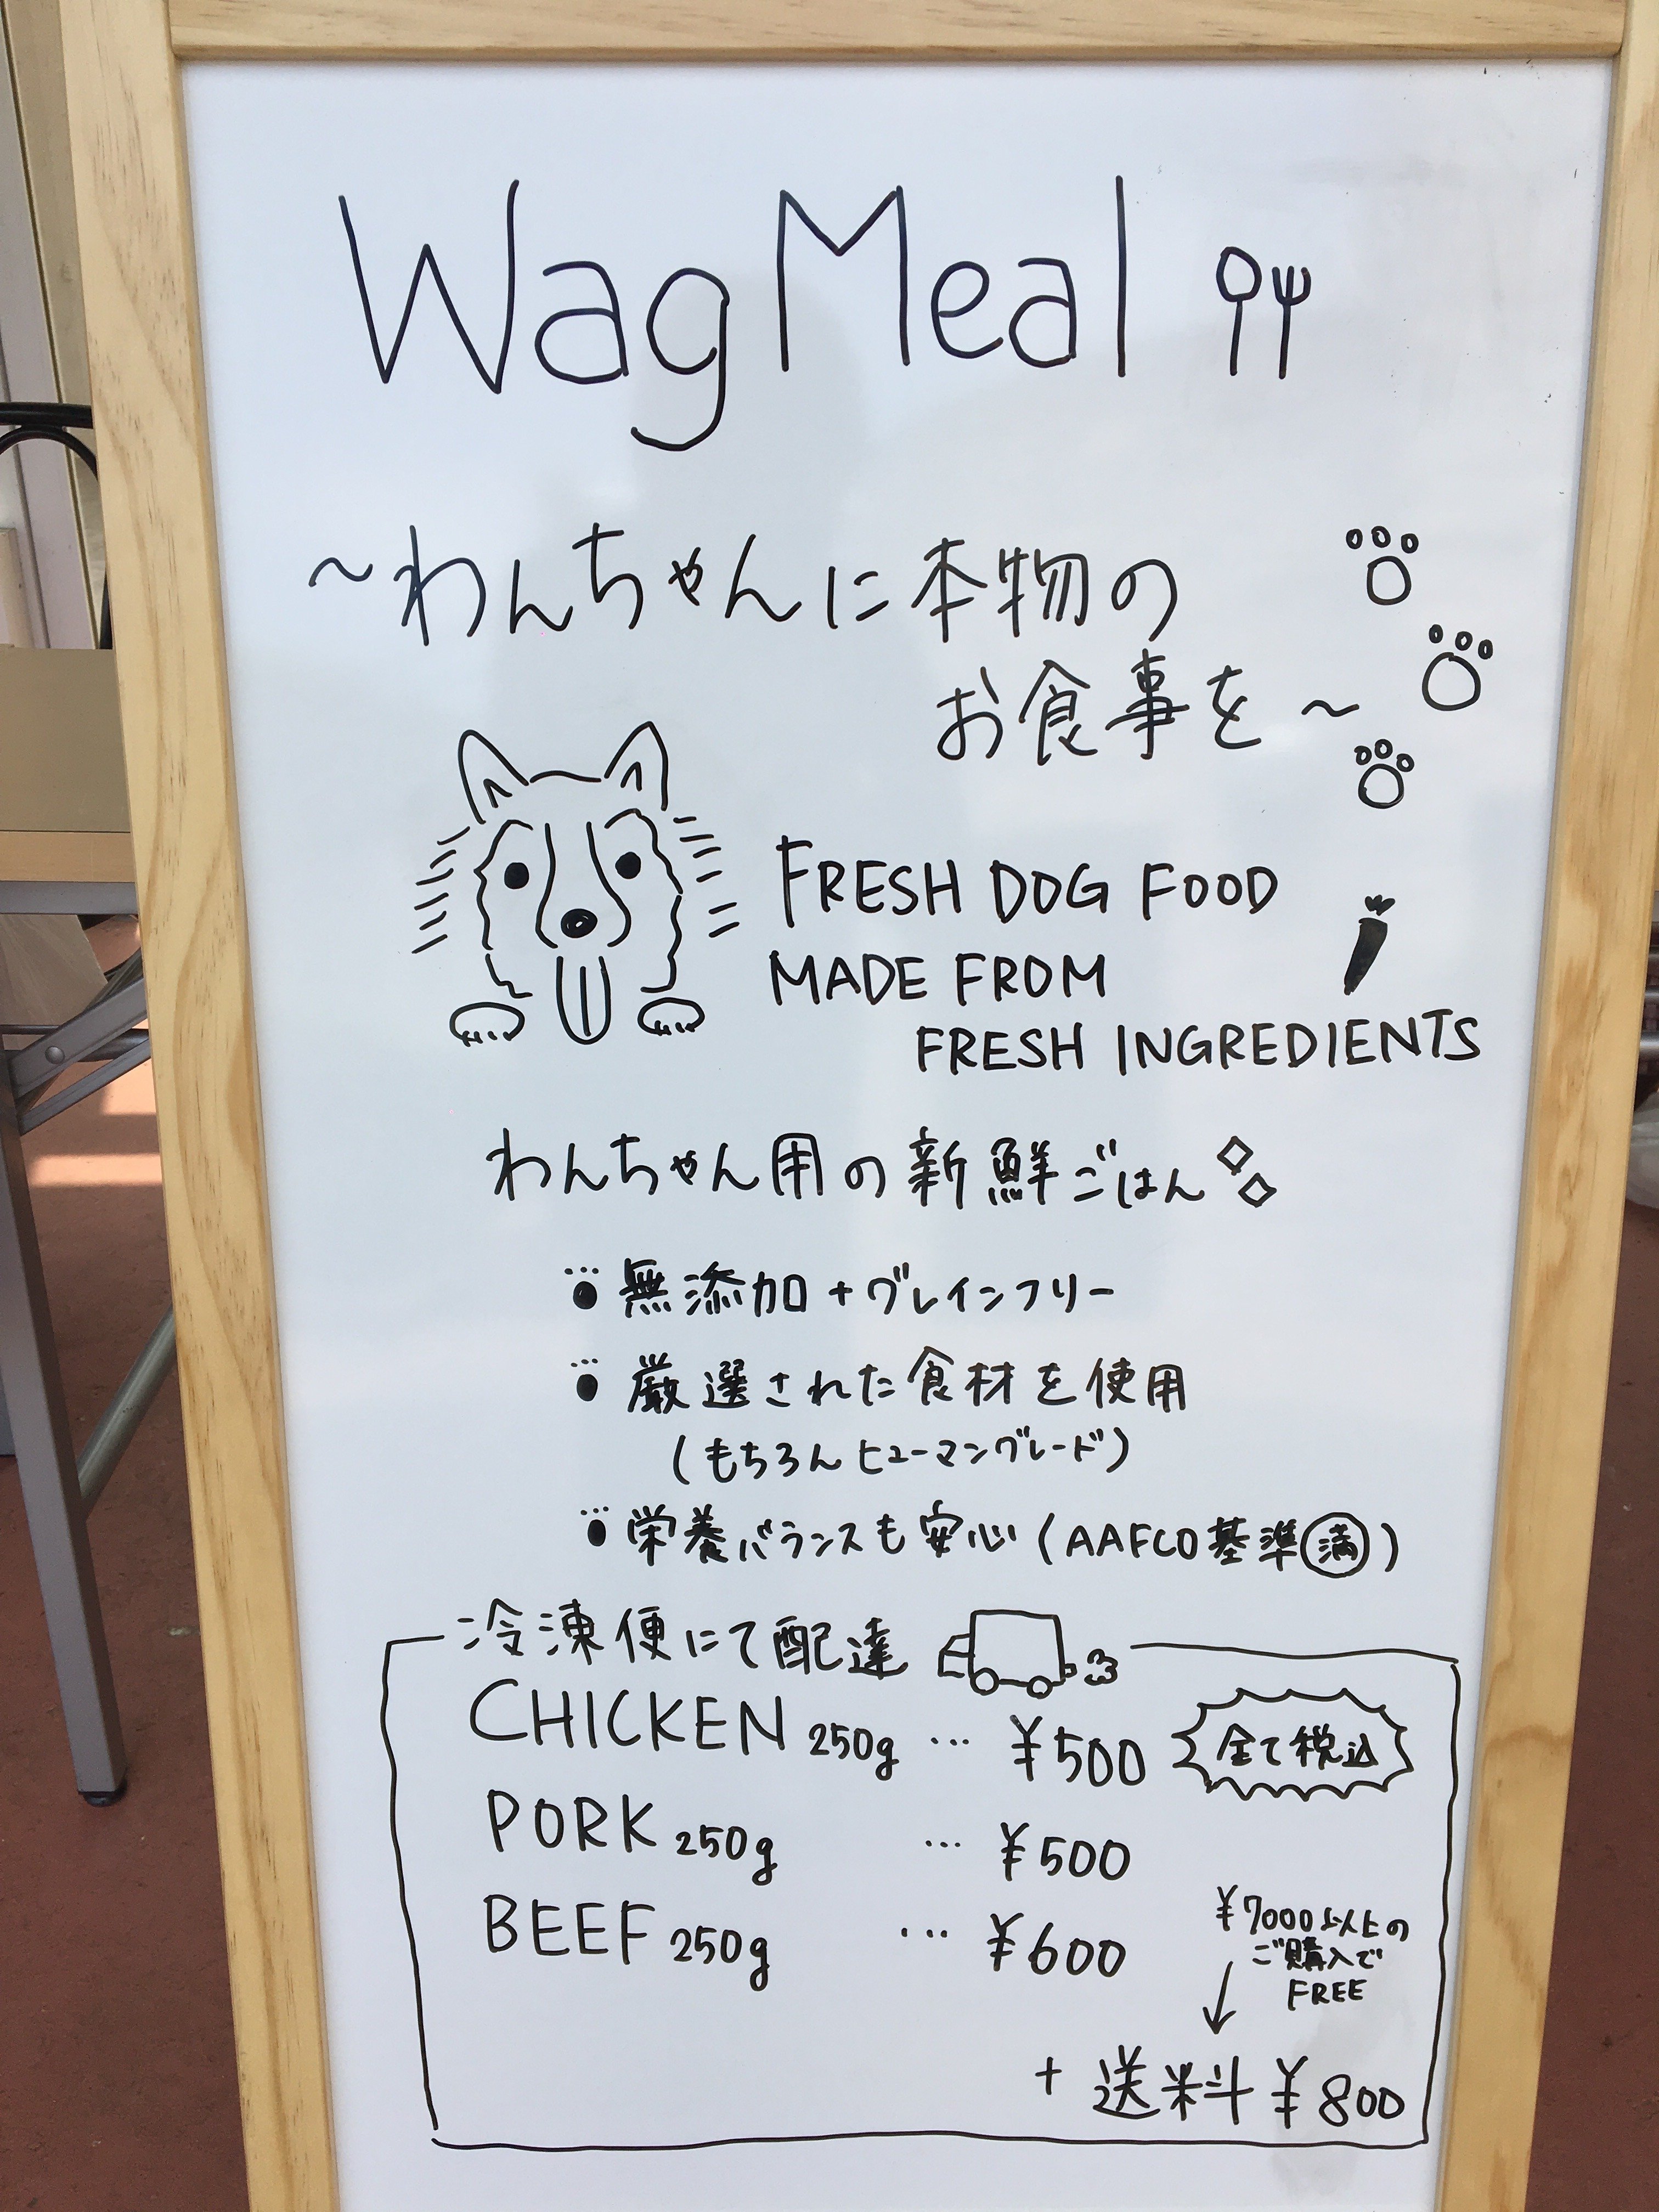 Wag Meal
~わんちゃんに本物の
お食事を~
FRESH DOG FOOD
MADE FROM
FRESH INGREDIENTS
わんちゃん用の新鮮ごはん
無添加+グレインフリー
厳選された食材を使用
(もちろんヒューマングレード)
栄養バランスも安心(AAFCO基準満)
冷凍便にて配達
CHICKEN 250g … ¥500
全て税込
PORK 250g … ¥500
BEEF 250g … ¥600
¥7000以上の
ご購入で
FREE
+ 送料 ¥800